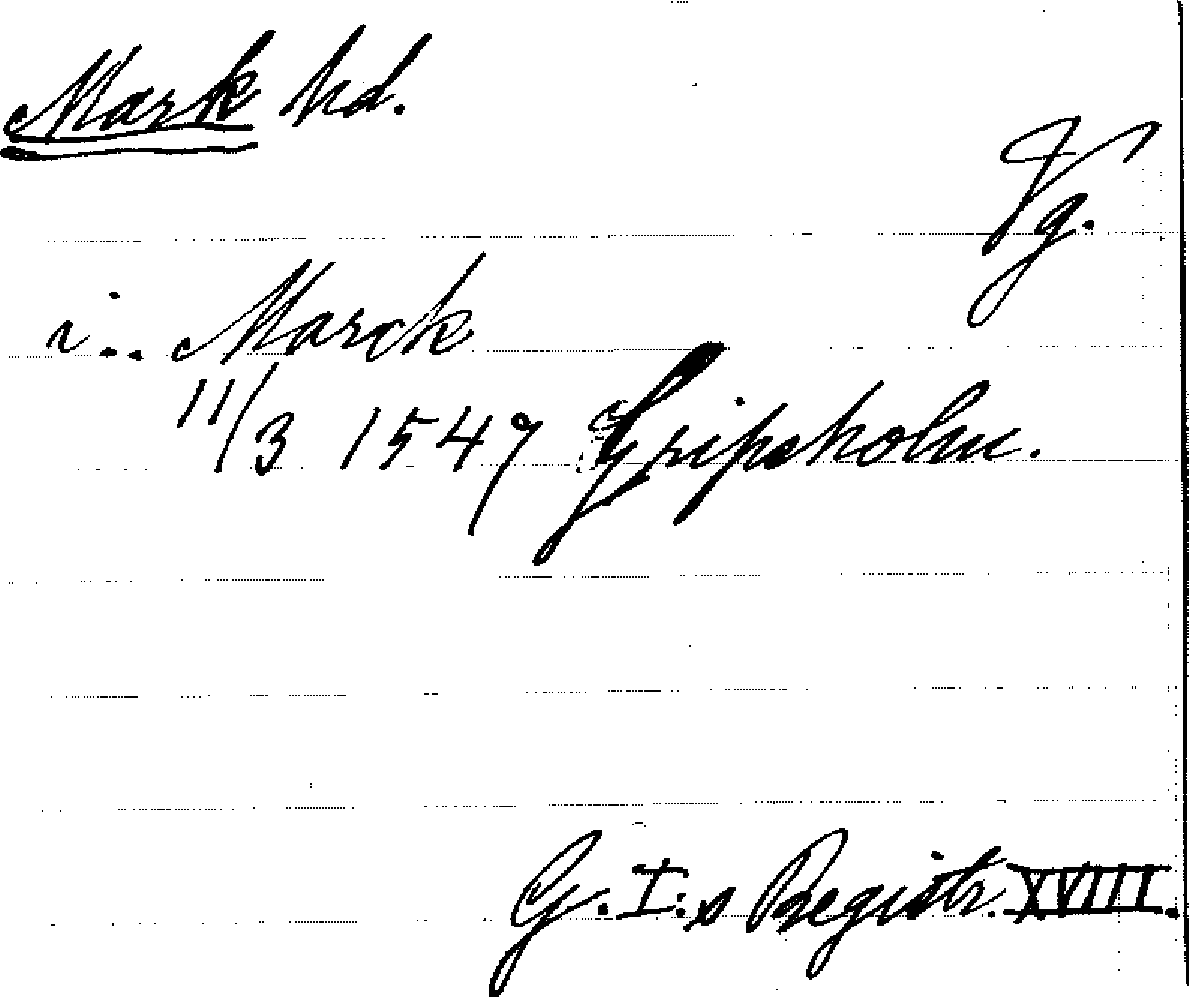 Mark hd.
Vg.
i.. Marck
11/3 1547 Gripsholm.
G. I:s Registr. XVIII.